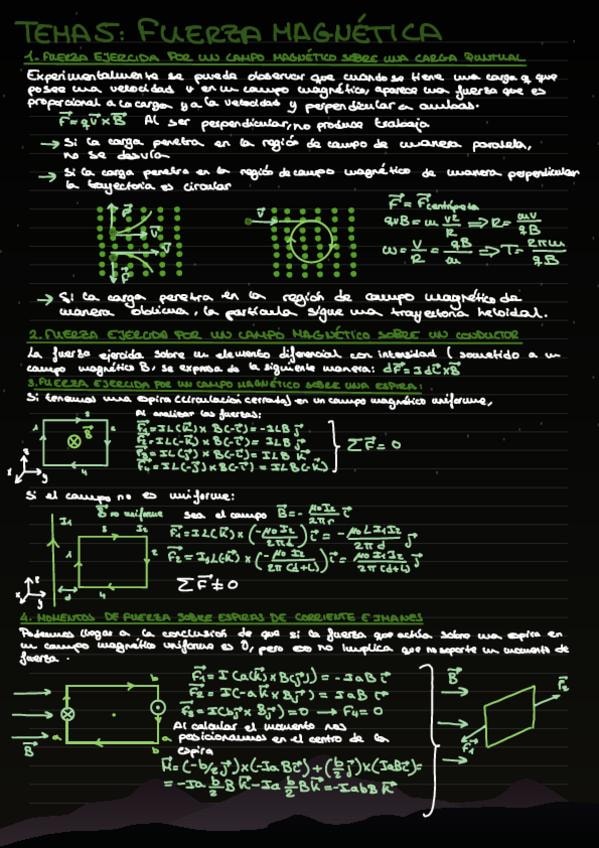 TEMA 5: FUERZA MAGNÉTICA
1. FUERZA EJERCIDA POR UN CAMPO MAGNÉTICO SOBRE UNA CARGA PUNTUAL
Experimentalmente se puede observar que cuando se tiene una carga q que
posee una velocidad v en un campo magnético, aparece una fuerza que es
proporcional a la carga y a la velocidad y perpendicular a ambas.
F⃗=qv⃗×B⃗ Al ser perpendicular, no produce trabajo
→ Si la carga penetra en la región de campo de manera paralela,
no se desvía
→ Si la carga penetra en la región de campo magnético de manera perpendicular
la trayectoria es circular
F⃗ = F⃗centrípeta
qvB = m v²/R ⇒ R = mv/qB
ω = v/R = qB/m ⇒ T = 2πm/qB
→ Si la carga penetra en la región de campo magnético de
manera oblicua, la partícula sigue una trayectoria heloidal.
2. FUERZA EJERCIDA POR UN CAMPO MAGNÉTICO SOBRE UN CONDUCTOR
La fuerza ejercida sobre un elemento diferencial con intensidad I sometido a un
campo magnético B, se expresa de la siguiente manera: dF⃗=Idl⃗×B⃗
3. FUERZA EJERCIDA POR UN CAMPO MAGNÉTICO SOBRE UNA ESPIRA:
Si tenemos una espira (circulación cerrada) en un campo magnético uniforme,
Al analizar las fuerzas:
ΣF⃗ = 0
Si el campo no es uniforme:
B⃗ no uniforme sea el campo B⃗ = - μ0I2/2πr i⃗
ΣF⃗ ≠ 0
4. MOMENTOS DE FUERZA SOBRE ESPIRAS DE CORRIENTE E IMANES
Podemos llegar a la conclusión de que si la fuerza que actúa sobre una espira en
un campo magnético uniforme es 0, pero eso no implica que no soporte un momento de
fuerza.
F⃗1 = I(ak⃗) × B(j⃗) = -IaB i⃗
F⃗2 = I(-ak⃗ × Bj⃗) = IaB i⃗
F⃗3 = I(bj⃗ × Bj⃗) = 0 → F4 = 0
Al calcular el momento nos
posicionamos en el centro de la
espira
M⃗ = (-b/2 j⃗) × (-IaBi⃗) + (b/2 j⃗) × (IaBi⃗) =
= -Ia b/2 B k⃗ - Ia b/2 B k⃗ = -IabB k⃗